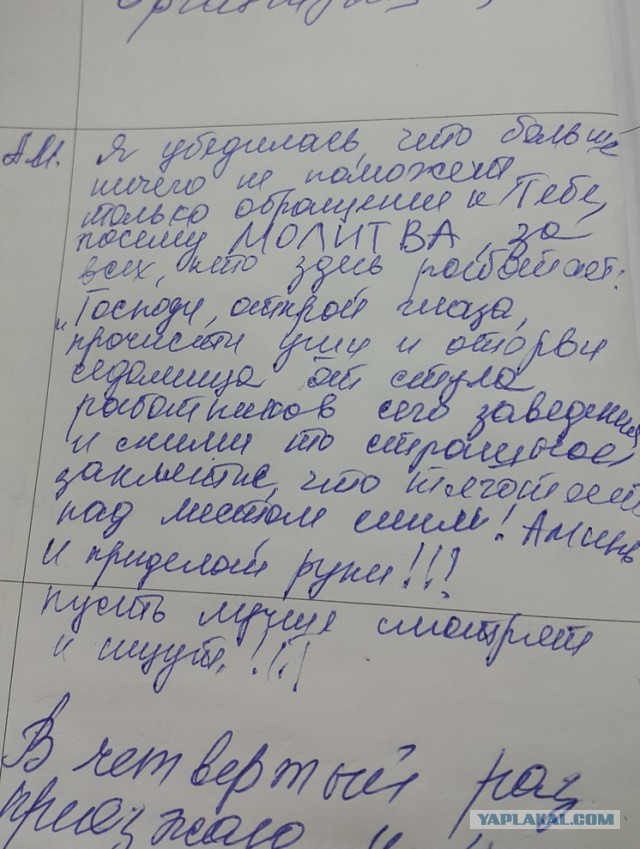 А.М. Я убедилась, что больше
ничего не поможет
только обращение к Тебе,
посему МОЛИТВА за
всех, кто здесь работает:
"Господи, открой глаза,
прочисти уши и оторви
седалища от стула
работников сего заведения
и сними то страшное
заклятие, что тяготеет
над местом сим! Аминь
И приделай руки!!!
пусть лучше смотрят
и ищут!!!
В четвертый раз
приезжаю и
YAPLAKAL.COM